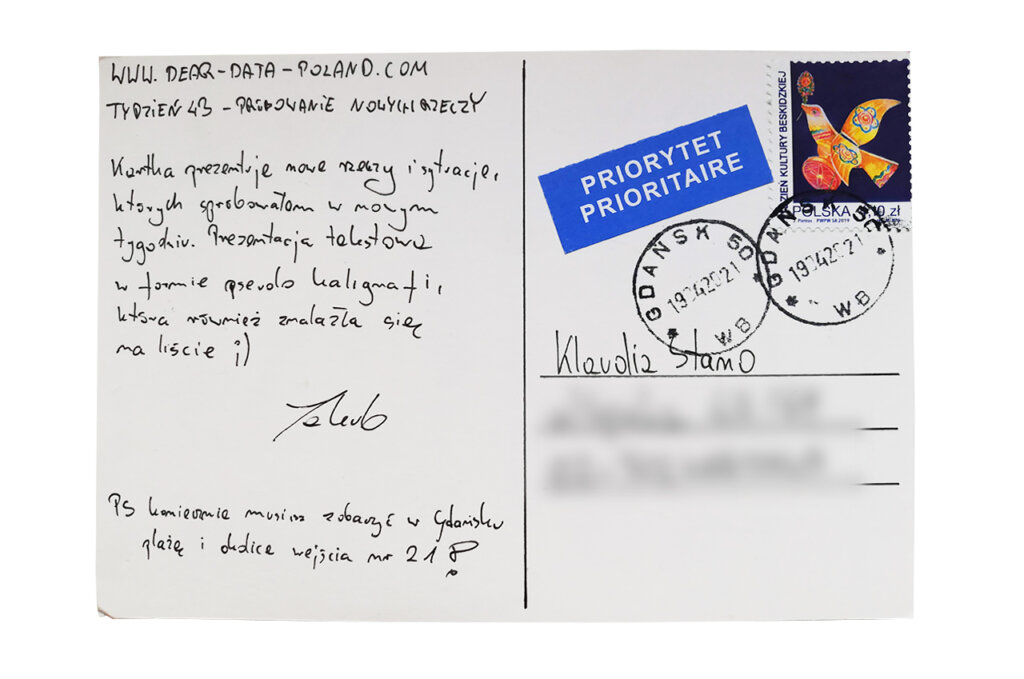 WWW. DEAR-DATA-POLAND.COM
TYDZIEŃ 43 - PRÓBOWANIE NOWYCH RZECZY
Kartka prezentuje nowe rzeczy i sytuacje,
których spróbowałam w nowym
tygodniu. Prezentacja tekstowa
w formie pseudo kaligrafii,
która również znalazła się
na liście ;)
Jakub
PS koniecznie musisz zobaczyć w Gdańsku
plażę i okolice wejścia nr 21
PRIORYTET
PRIORITAIRE
DZIEŃ KULTURY BESKIDZKIEJ
POLSKA 10 zł
GDAŃSK 50
19042021
WB
GDAŃSK 50
19042021
WB
Klaudia Stano